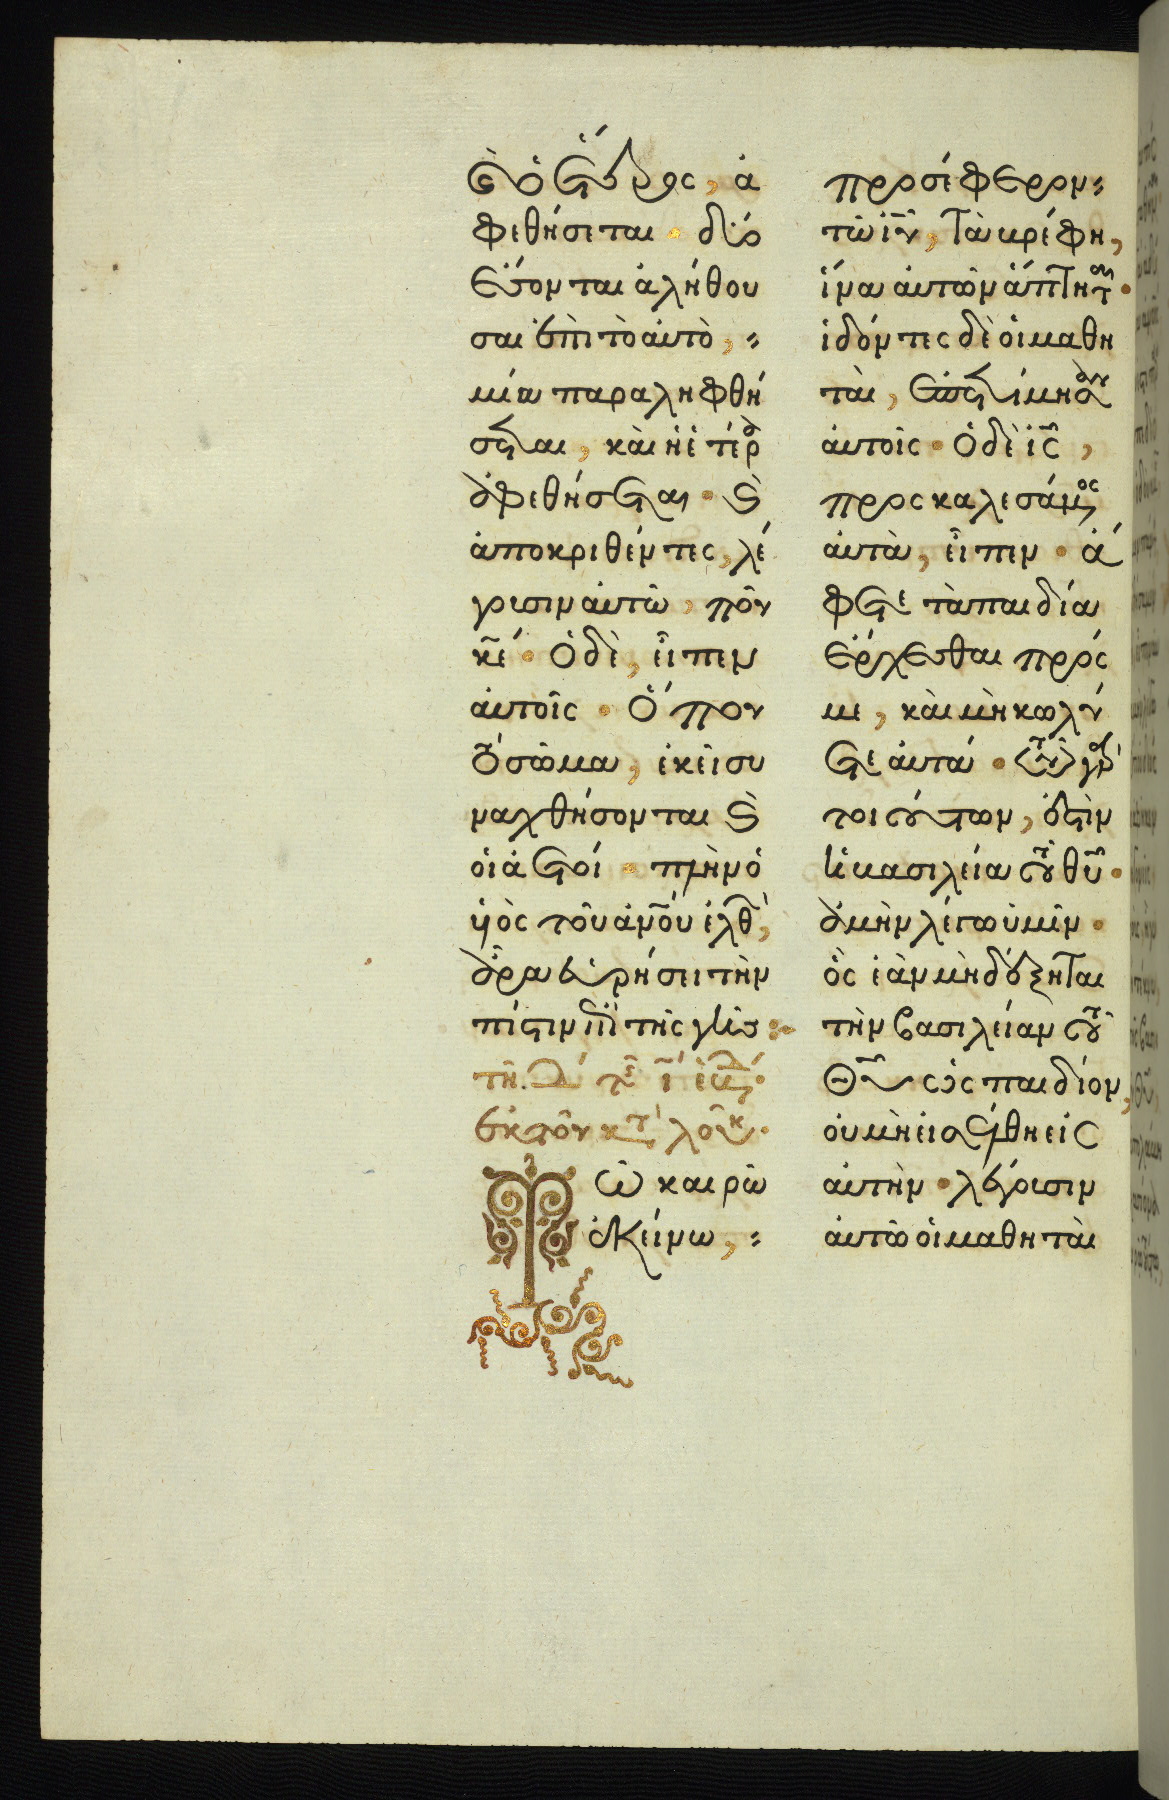 καὶ ὁ ἕτερος, ἀ
φεθήσεται · δύο
ἔσονται ἀλήθου
σαι ἐπὶ τὸ αὐτὸ,
μία παραληφθή
σεται, καὶ ἡ ἑτέρα
ἀφεθήσεται · καὶ
ἀποκριθέντες, λέ
γουσιν αὐτῶ, ποῦ
κε· ὁ δὲ, εἶπεν
αὐτοῖς · ὅπου
τὸ σῶμα, ἐκεῖ συ
ναχθήσονται καὶ
οἱ ἀετοί · πλὴν ὁ
υἱὸς τοῦ ἀνου ἐλθὼν,
ἆρα εὑρήσει τὴν
πίστιν ἐπὶ τῆς γῆς
ἐκ τοῦ κατὰ λουκ.
Τῶ καιρῶ
ἐκείνω,
προσέφερον
τῶ ιυ, τὰ βρέφη,
ἵνα αὐτῶν ἅπτηται ·
ἰδόντες δὲ οἱ μαθη
ταὶ, ἐπετίμησαν
αὐτοῖς · ὁ δὲ ις,
προσκαλεσάμενος
αὐτὰ, εἶπεν · ἄ
φετε τὰ παιδία
ἔρχεσθαι πρός
με, καὶ μὴ κωλύ
ετε αὐτά · τῶν γὰρ
τοιούτων, ἐστὶν
ἡ βασιλεία τοῦ θυ ·
ἀμὴν λέγω ὑμῖν ·
ὃς ἐὰν μὴ δέξηται
τὴν βασιλείαν τοῦ
θυ ὡς παιδίον,
οὐ μὴ εἰσέλθη εἰς
αὐτὴν · λέγουσιν
αὐτῶ οἱ μαθηταὶ